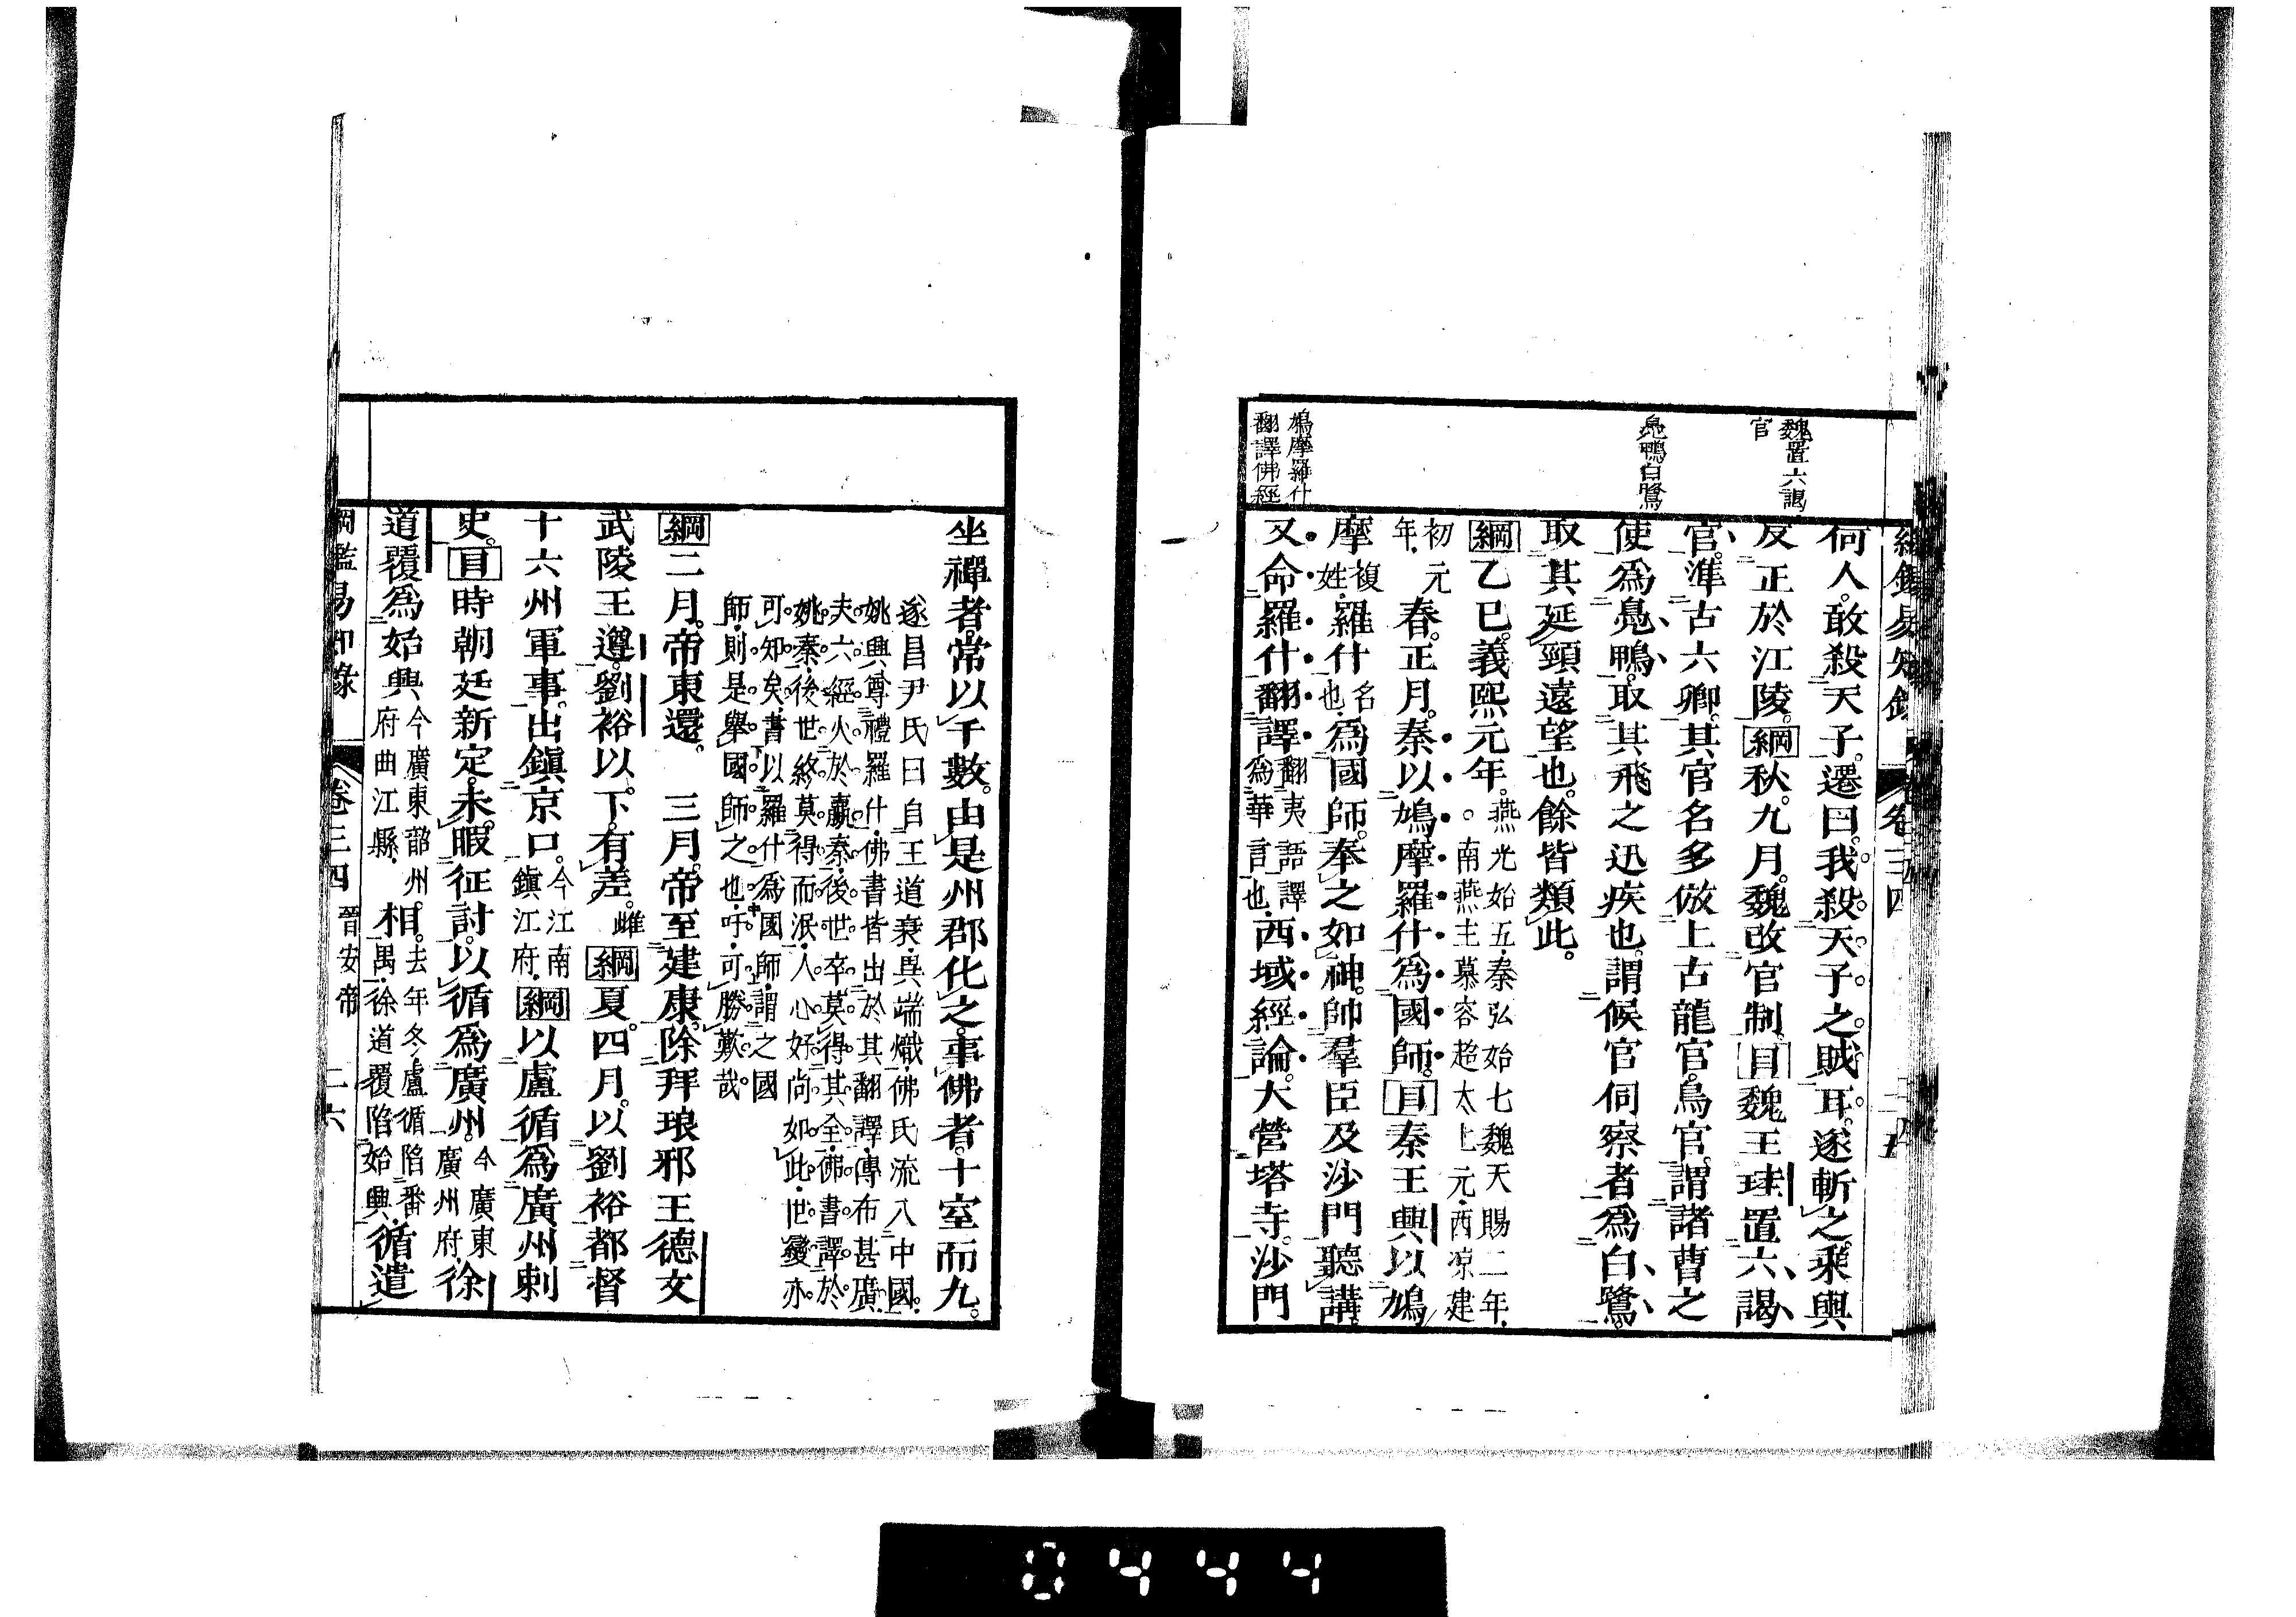 綱鑑易知錄 卷三四
魏置六謁
官
鳧鴨白鷺
鳩摩羅什
翻譯佛經
何人。敢殺天子。遷曰。我殺天子之賊耳。遂斬之。乘輿
反正於江陵。綱秋。九月。魏改官制。目魏王珪置六謁
官。準古六卿。其官名多倣上古龍官。鳥官。謂諸曹之
使爲鳧鴨。取其飛之迅疾也。謂候官伺察者爲白鷺。
取其延頸遠望也。餘皆類此。
綱乙巳。義熙元年。燕光始五秦弘始七魏天賜二年。
。南燕主慕容超太上元。西凉建
初元
年。春。正月。秦以鳩摩羅什爲國師。目秦王興以鳩
摩複姓。羅什名也。爲國師。奉之如神。帥羣臣及沙門聽講。
又命羅什翻譯翻夷語譯爲華言也。西域經論。大營塔寺。沙門
坐禪者。常以千數。由是州郡化之。事佛者。十室而九。
遂昌尹氏曰自王道衰。異端熾。佛氏流入中國。
姚興尊禮羅什。佛書皆出於其翻譯。傳布甚廣。
夫六經火於嬴秦。後世卒莫得其全。佛書譯於
姚秦。後世終莫得而泯。人心好尚如此。世變亦
可知矣。書以羅什爲國師。謂之國
師。則是舉國師之也。吁。可勝歎哉
綱二月。帝東還。 三月。帝至建康。除拜琅邪王德文
武陵王遵。劉裕以。下。有差。雌綱夏。四月。以劉裕都督
十六州軍事。出鎭京口。今江南鎭江府。綱以盧循爲廣州刺
史。目時朝廷新定。未暇征討。以循爲廣州。今廣東廣州府。徐
道覆爲始興今廣東韶州府曲江縣。相。去年冬盧循陷番禺。徐道覆陷始興。循遣
綱鑑易知錄 卷三四 晉安帝 二六
0444